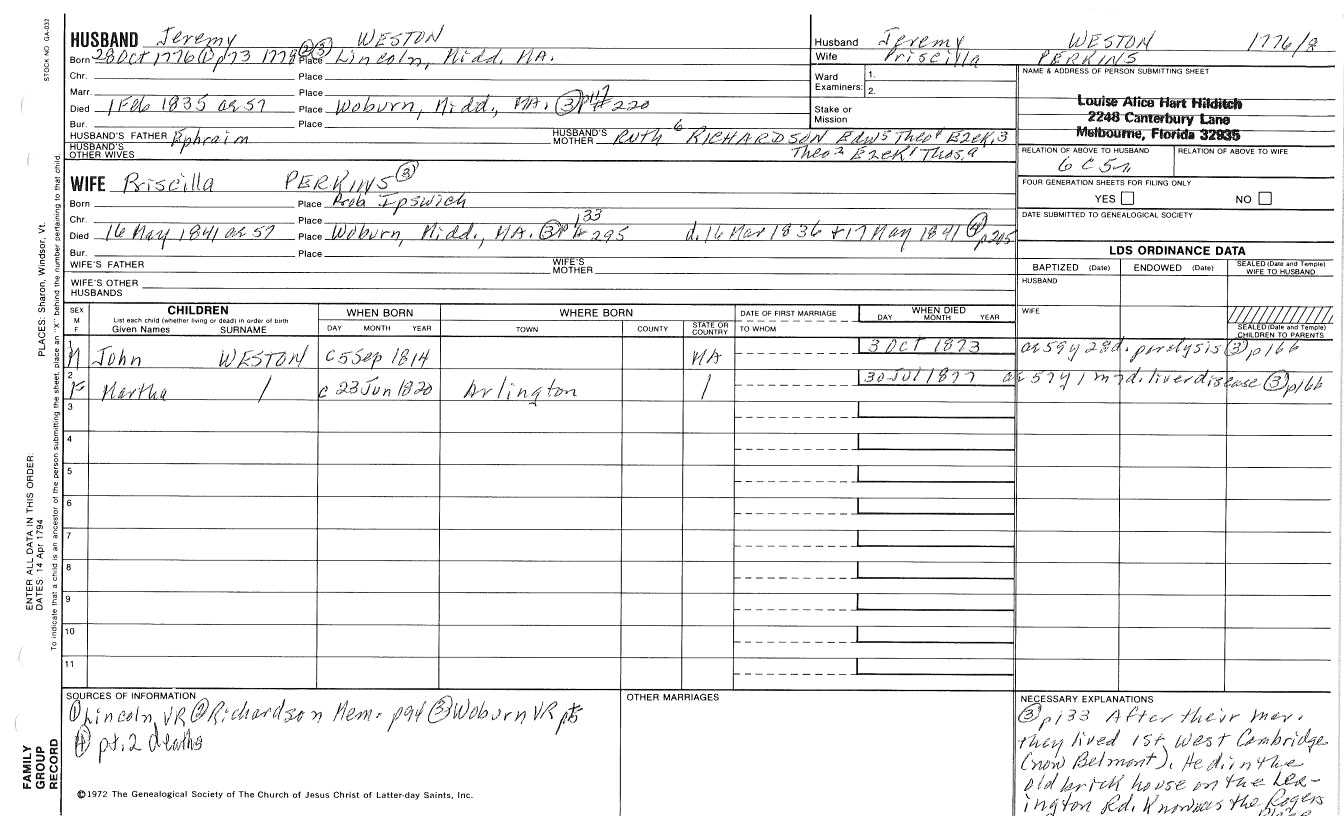 STOCK NO. GA-032
HUSBAND Jeremy WESTON
Born 28 Oct 1776 ① p73 1778 ② ③ Place Lincoln, Midd, MA.
Chr. Place
Marr. Place
Died 1 Feb 1835 ae 57 Place Woburn, Midd., MA. ③ p117 # 220
Bur. Place
HUSBAND'S FATHER Ephraim
HUSBAND'S MOTHER Ruth 6 RICHARDSON Edw5 Theo4 Ezek.3
HUSBAND'S OTHER WIVES
Theo2 Ezek1 Thos.a
Husband Jeremy WESTON 1776/8
Wife Priscilla PERKINS
Ward Examiners: 1.
2.
Stake or Mission
NAME & ADDRESS OF PERSON SUBMITTING SHEET
Louise Alice Hart Hilditch
2248 Canterbury Lane
Melbourne, Florida 32935
RELATION OF ABOVE TO HUSBAND RELATION OF ABOVE TO WIFE
6 C 5r
FOUR GENERATION SHEETS FOR FILING ONLY
YES NO
DATE SUBMITTED TO GENEALOGICAL SOCIETY
WIFE Priscilla PERKINS ③
Born Place Prob Ipswich
Chr. Place
Died 16 May 1841 ae 57 Place Woburn, Midd., MA. ③ p 133 # 295 d. 16 Mar 1836 + 17 May 1841 ④ p205
Bur. Place
WIFE'S FATHER WIFE'S MOTHER
WIFE'S OTHER HUSBANDS
LDS ORDINANCE DATA
BAPTIZED (Date) ENDOWED (Date) SEALED (Date and Temple) WIFE TO HUSBAND
HUSBAND
WIFE
SEALED (Date and Temple) CHILDREN TO PARENTS
SEX M F
CHILDREN
List each child (whether living or dead) in order of birth
Given Names SURNAME
WHEN BORN
DAY MONTH YEAR
WHERE BORN
TOWN COUNTY STATE OR COUNTRY
DATE OF FIRST MARRIAGE
TO WHOM
WHEN DIED
DAY MONTH YEAR
1 M John WESTON c 5 Sep 1814 MA 3 Oct 1873 ae 59y 28d. paralysis ③ p166
2 F Martha / c 23 Jun 1820 Arlington / 30 Jul 1877 ae 57y 1m 7d. liver disease ③ p166
3
4
5
6
7
8
9
10
11
SOURCES OF INFORMATION
① Lincoln VR ② Richardson Mem. p94 ③ Woburn VR pt5
④ pt. 2 deaths
©1972 The Genealogical Society of The Church of Jesus Christ of Latter-day Saints, Inc.
OTHER MARRIAGES
NECESSARY EXPLANATIONS
③ p133 After their mar.
they lived 1st. West Cambridge
(now Belmont). He d. in the
old brick house on the Lex-
ington Rd. Known as the Rogers
Place
ENTER ALL DATA IN THIS ORDER.
DATES: 14 Apr 1794 PLACES: Sharon, Windsor, Vt.
To indicate that a child is an ancestor of the person submitting the sheet, place an "X" behind the number pertaining to that child.
FAMILY
GROUP
RECORD